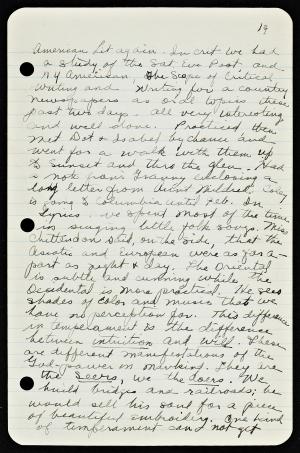 19
American Lit again. In crit we had
a study of the Sat. Eve Post and
N.Y. American, the Scope of Critical
Writing and Writing for a country
newspapers as oral topics these
past two days - all very interesting
and well done. Practiced then
met Dot & Isabel by chance and
went for a walk with them up
to Sunset and thru the glen. Had
a note from Granny enclosing a
long letter from Aunt Mildred.
is going to Columbia until Feb. In
Lyrics - we spend most of the time
in singing little folk songs. Miss
Chittenden said, on the side, that the
Asiatic and European were as far a-
part as night & day. The Oriental
is subtle and cunning while the
Occidental is more practical. He sees
shades of color and music that we
have no perception for. This difference
in temperament is the difference
between intuition and will. These
are different manifestations of the
God-power in mankind. They are
the seers, we the doers. We
build bridges and railroads; he
would sell his soul for a piece
of beautiful embroidery. One kind
of temperament can not get